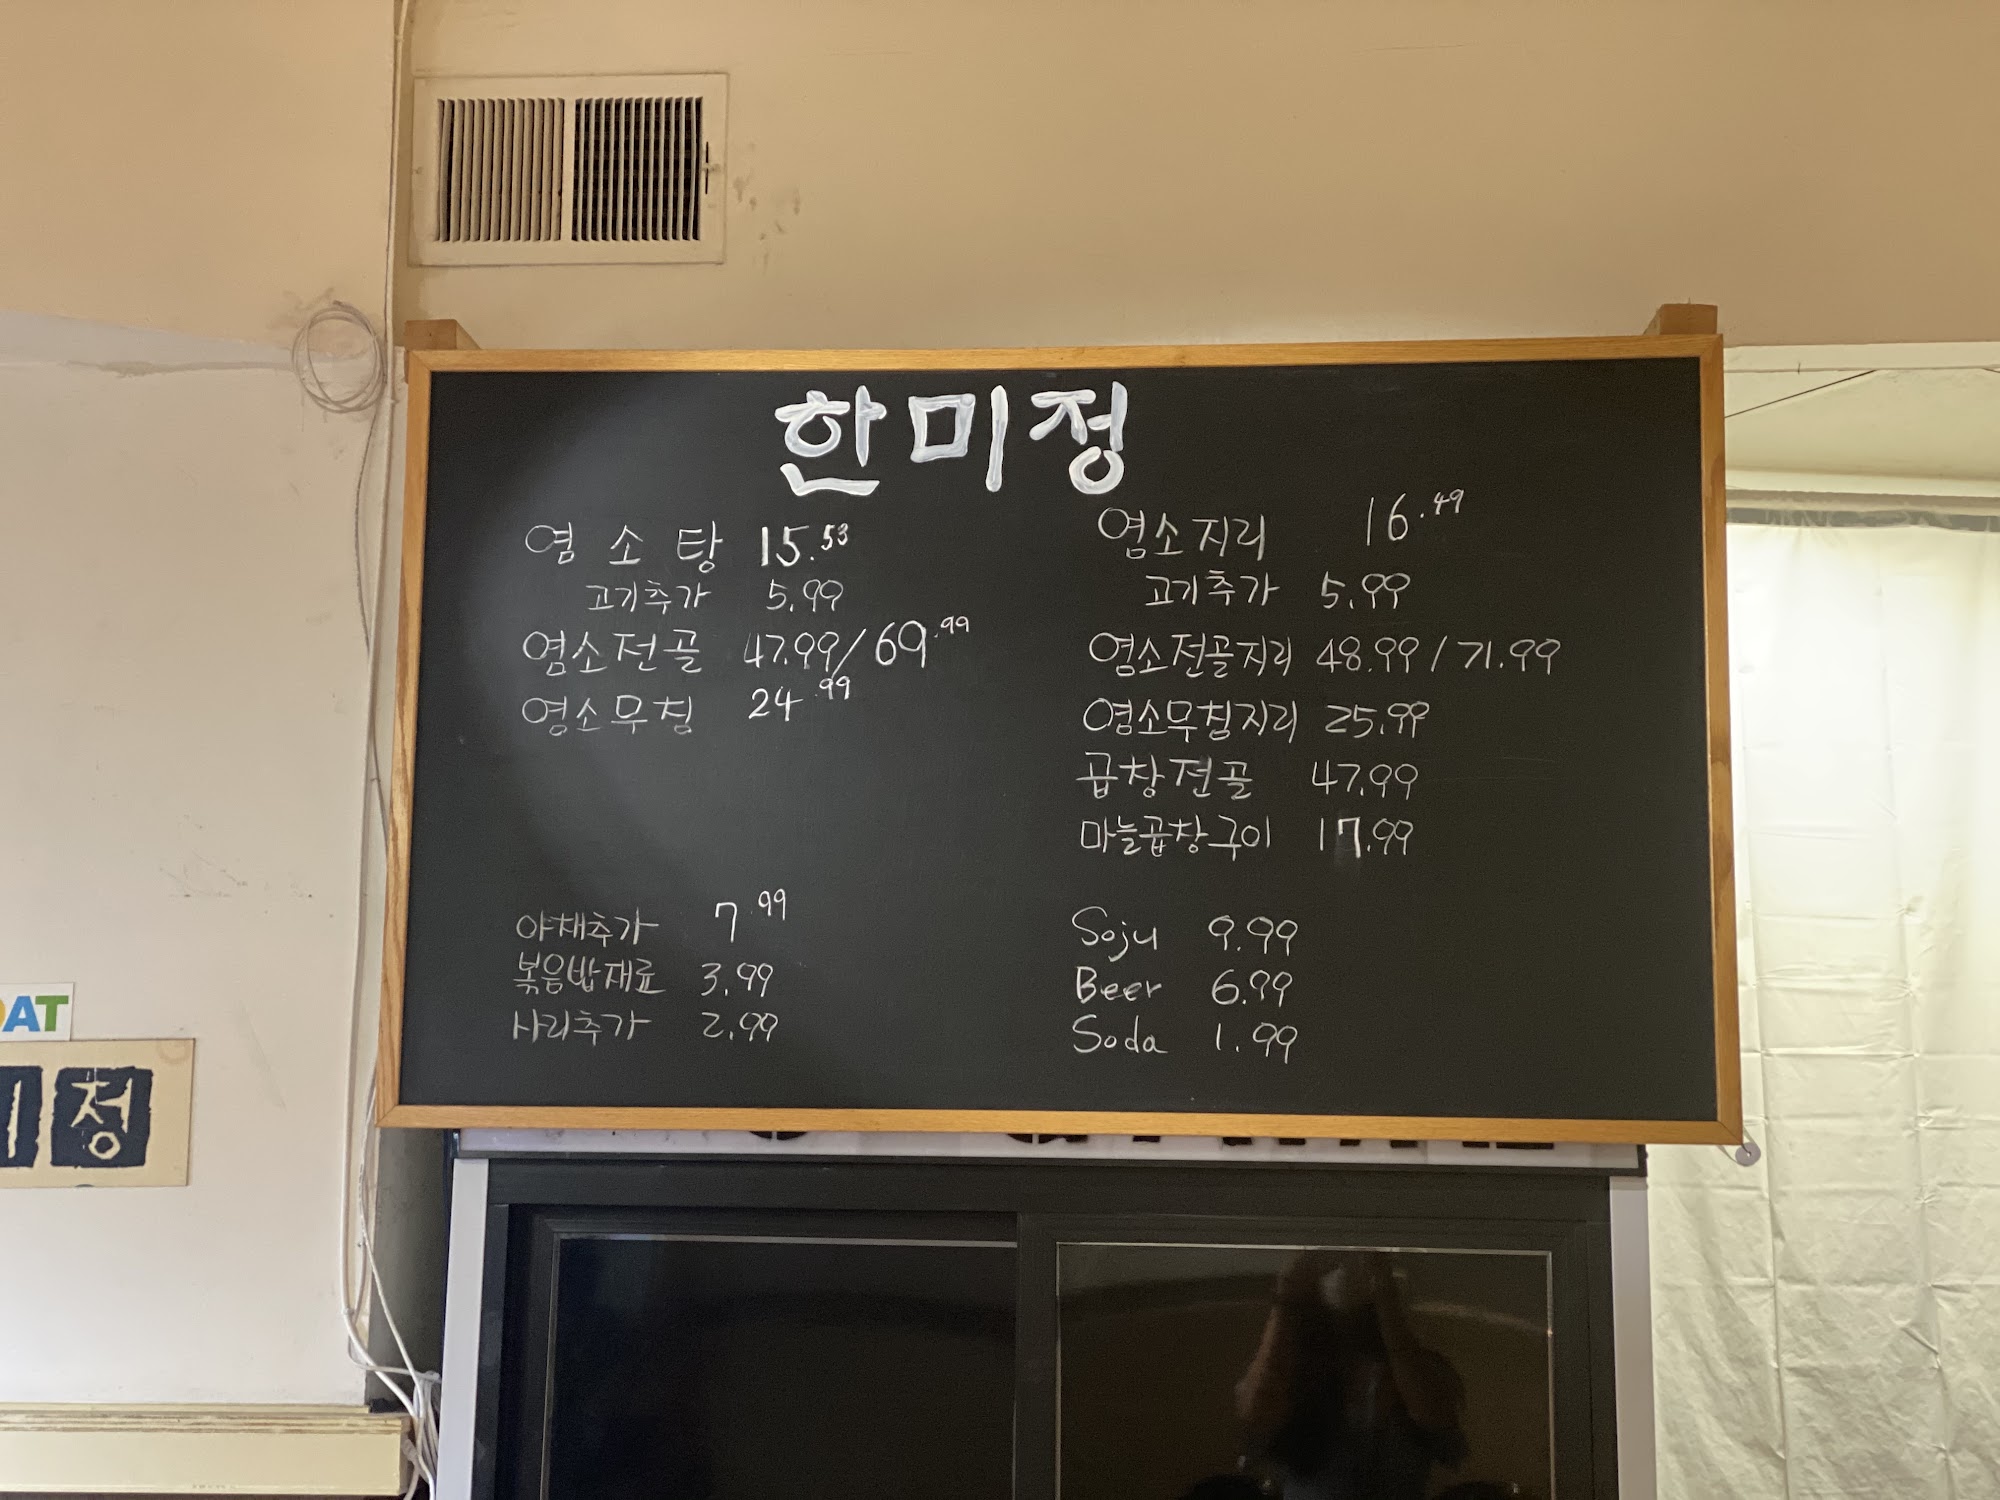 한미정
염소탕 15.53
고기추가 5.99
염소전골 47.99/69.99
염소무침 24.99
야채추가 7.99
볶음밥재료 3.99
사리추가 2.99
염소지리 16.49
고기추가 5.99
염소전골지리 48.99/71.99
염소무침지리 25.99
곱창전골 47.99
마늘곱창구이 17.99
Soju 9.99
Beer 6.99
Soda 1.99
OAT
정